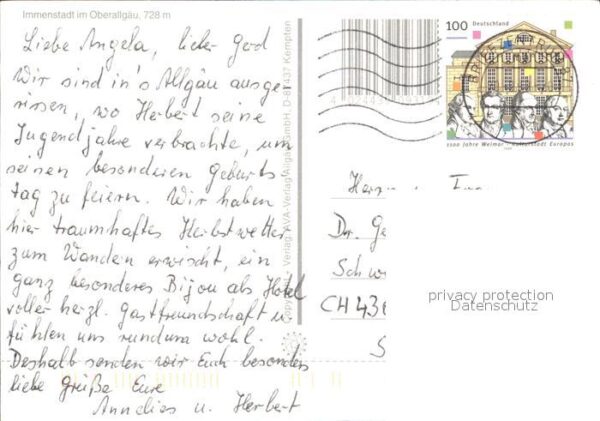 Immenstadt im Oberallgäu, 728 m
Liebe Angela, lieber Gerd
Wir sind in's Allgäu ausge
rissen, wo Herbert seine
Jugendjahre verbrachte, um
seinen besonderen Geburts
tag zu feiern. Wir haben
hier traumhaftes Herbstwetter
zum Wandern erwischt, ein
ganz besonderes Bijou als Hotel
voller herzl. Gastfreundschaft u.
fühlen uns rundum wohl.
Deshalb senden wir Euch besonders
liebe Grüße Eure
Annelies u. Herbert
Verlag: AVA-Verlag Allgäu GmbH, D-87437 Kempten
100 Deutschland
1100 Jahre Weimar · Kulturstadt Europas
Dr. Ge
Schw
CH 43
S
privacy protection
Datenschutz